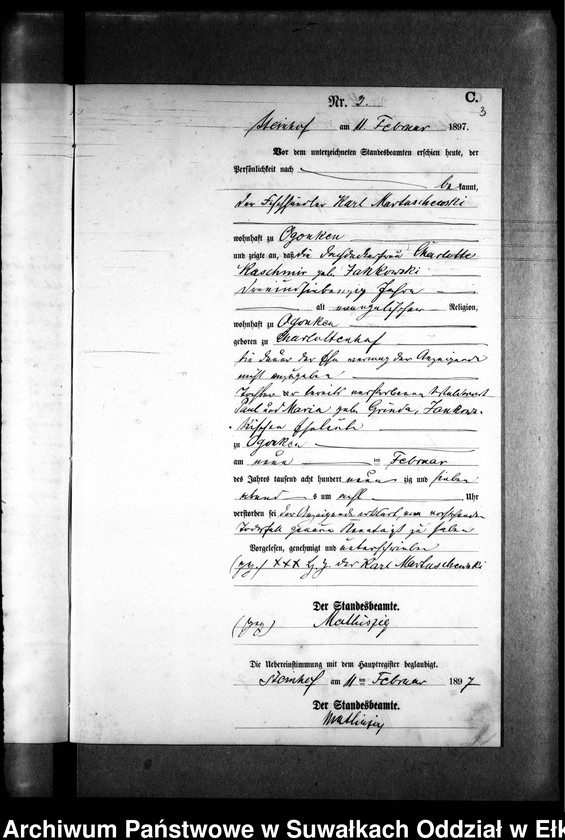 C.
Nr. 2.
3
Steinhof am 11 Februar 1897.
Vor dem unterzeichneten Standesbeamten erschien heute, der
Persönlichkeit nach
be kannt,
der Fischhändler Karl Martuschewski
wohnhaft zu Ogonken
und zeigte an, daß die Charlotte
Kaschmir geb. Jankowski
dreiundsiebenzig Jahre
alt evangelischer Religion,
wohnhaft zu Ogonken
geboren zu Charlottenhof
die Dauer der Ehe vermag der Anzeigende
nicht anzugeben
Tochter der bereits verstorbenen
Paul und Maria geb. Grinda, Jankow-
skischen Eheleute
zu Ogonken
am neun ten Februar
des Jahres tausend acht hundert neun zig und sieben
abend s um acht Uhr
verstorben sei der Anzeigende erklärt, vom vorstehenden
Todesfall genaue Kenntniß zu haben
Vorgelesen, genehmigt und unterschrieben
(gez) XXX Hz. des Karl Martuschewski
Der Standesbeamte.
(gez) Mathiszig
Die Uebereinstimmung mit dem Hauptregister beglaubigt.
Steinhof am 11 ten Februar 1897
Der Standesbeamte.
Mathiszig
Archiwum Państwowe w Suwałkach Oddział w Ełk